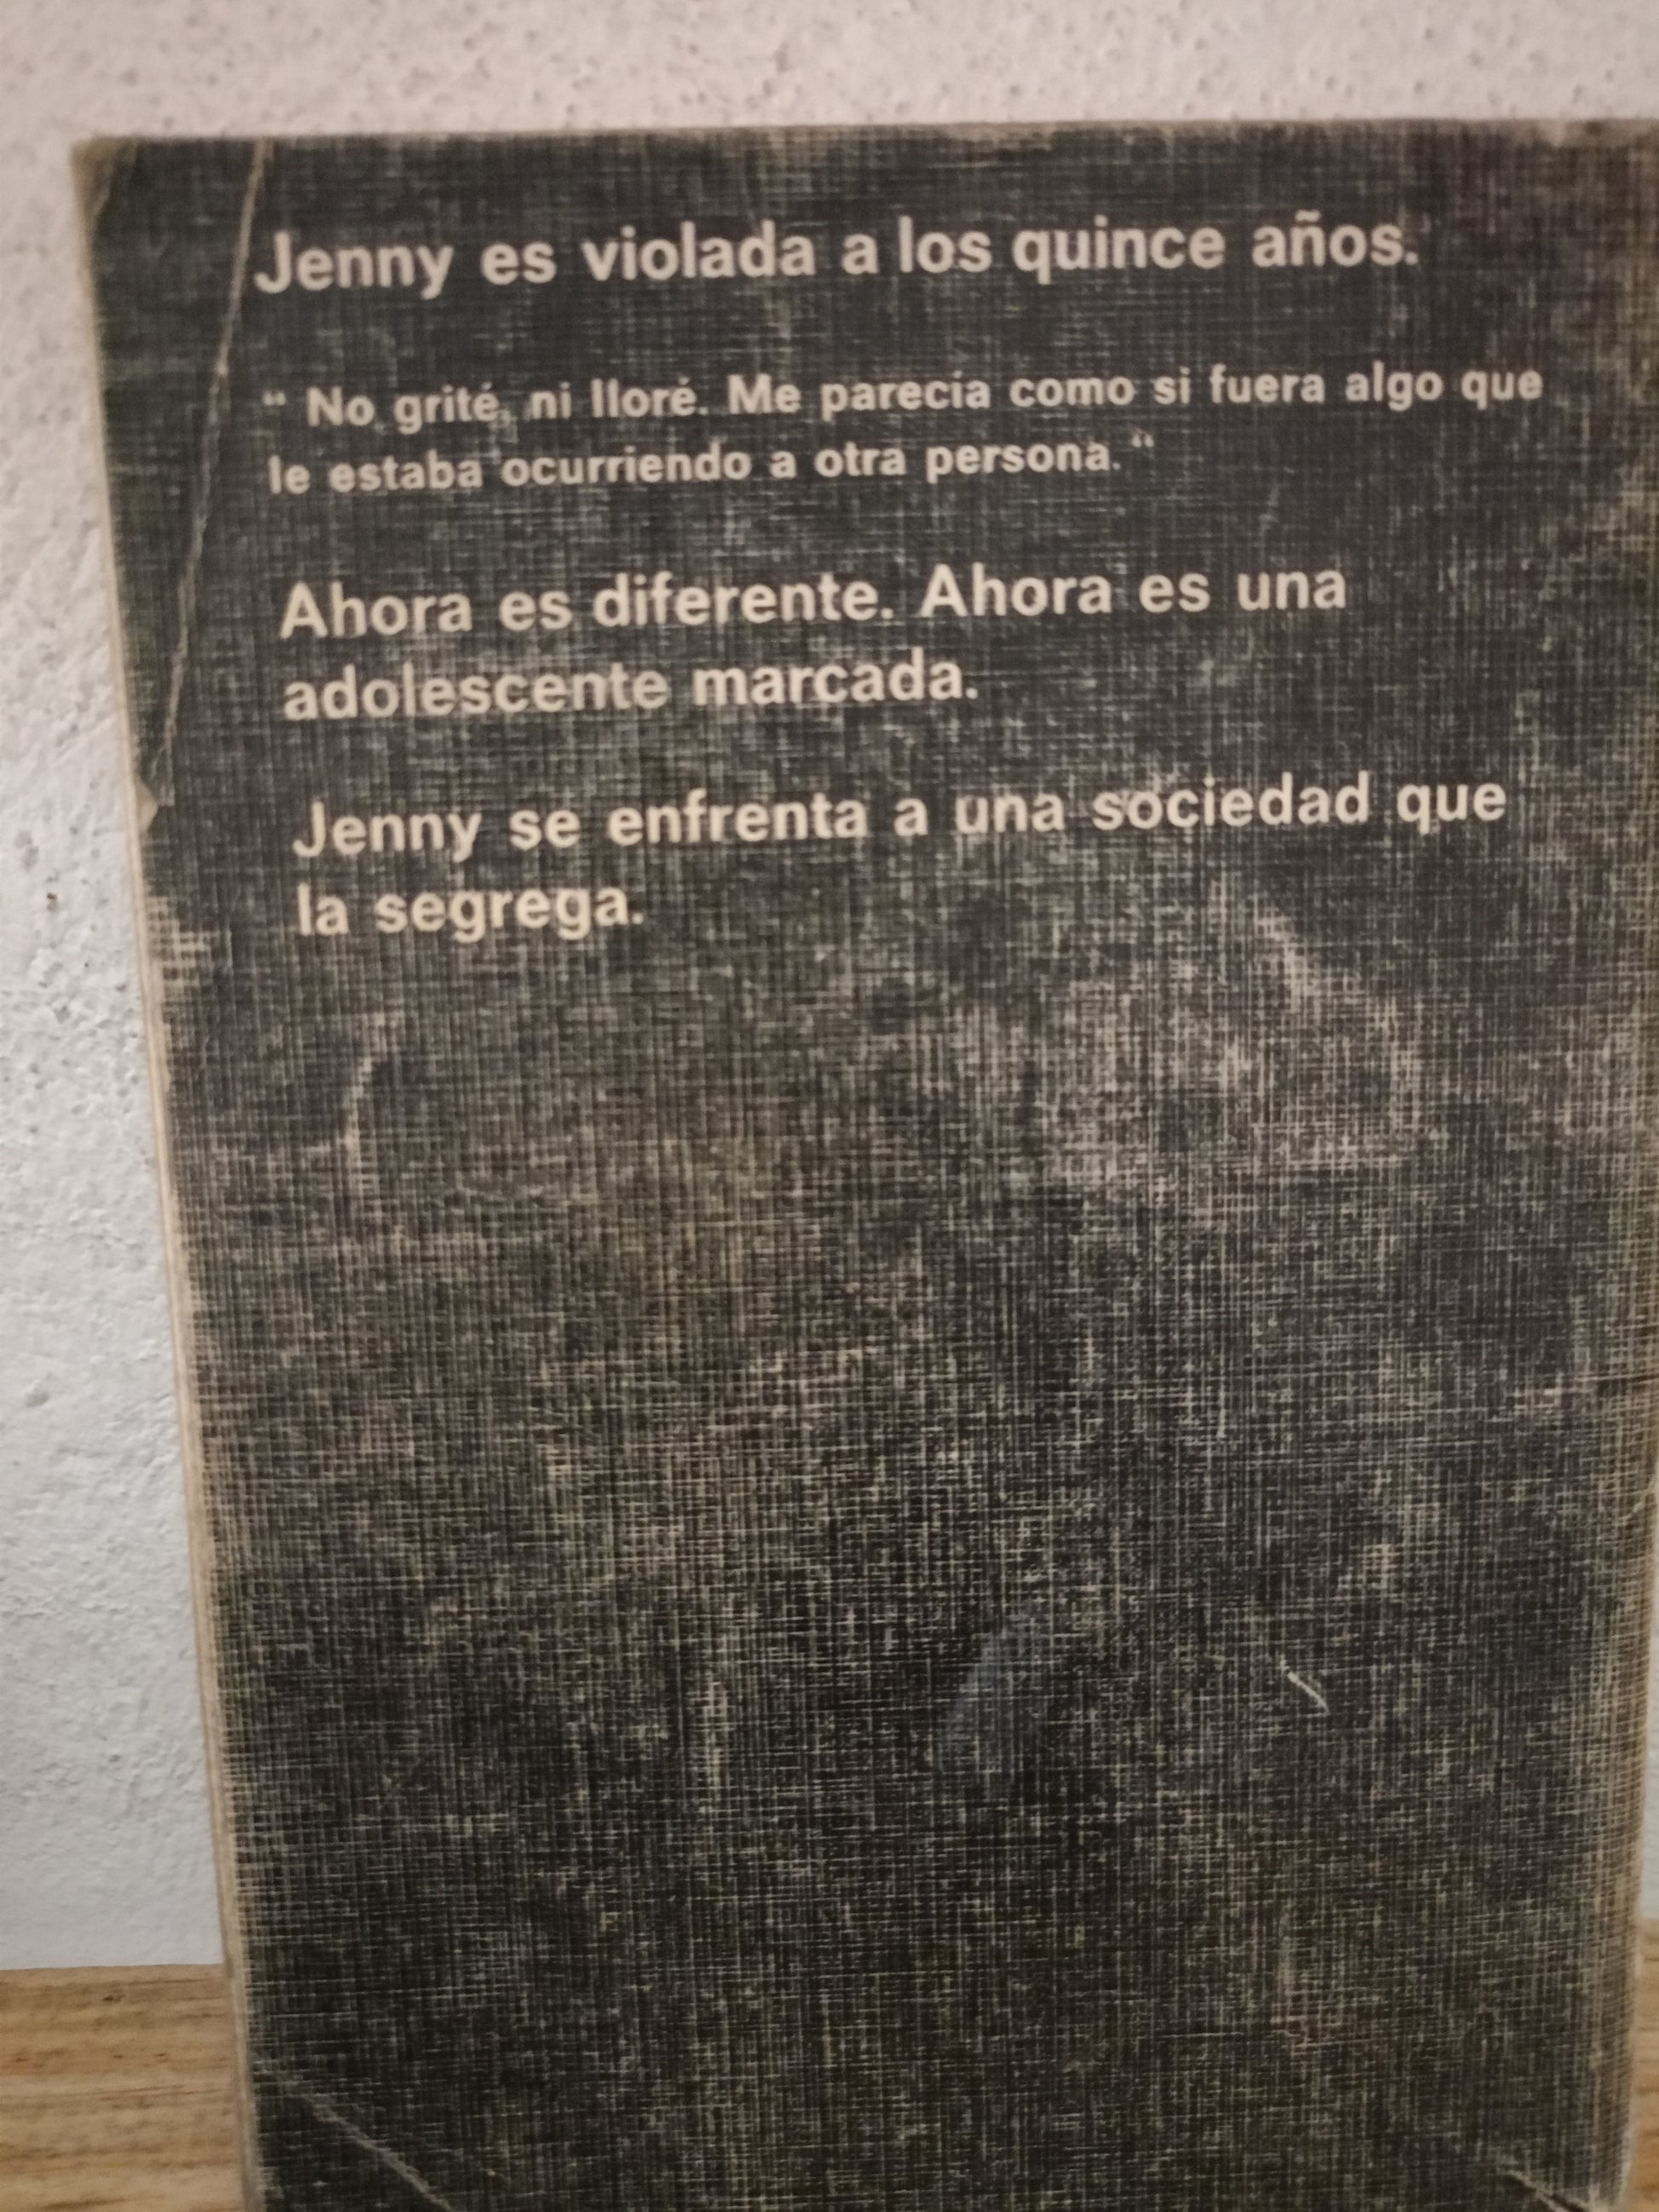 Jenny es violada a los quince años.
“ No grité, ni lloré. Me parecia como si fuera algo que
le estaba ocurriendo a otra persona.“
Ahora es diferente. Ahora es una
adolescente marcada.
Jenny se enfrenta a una sociedad que
la segrega.